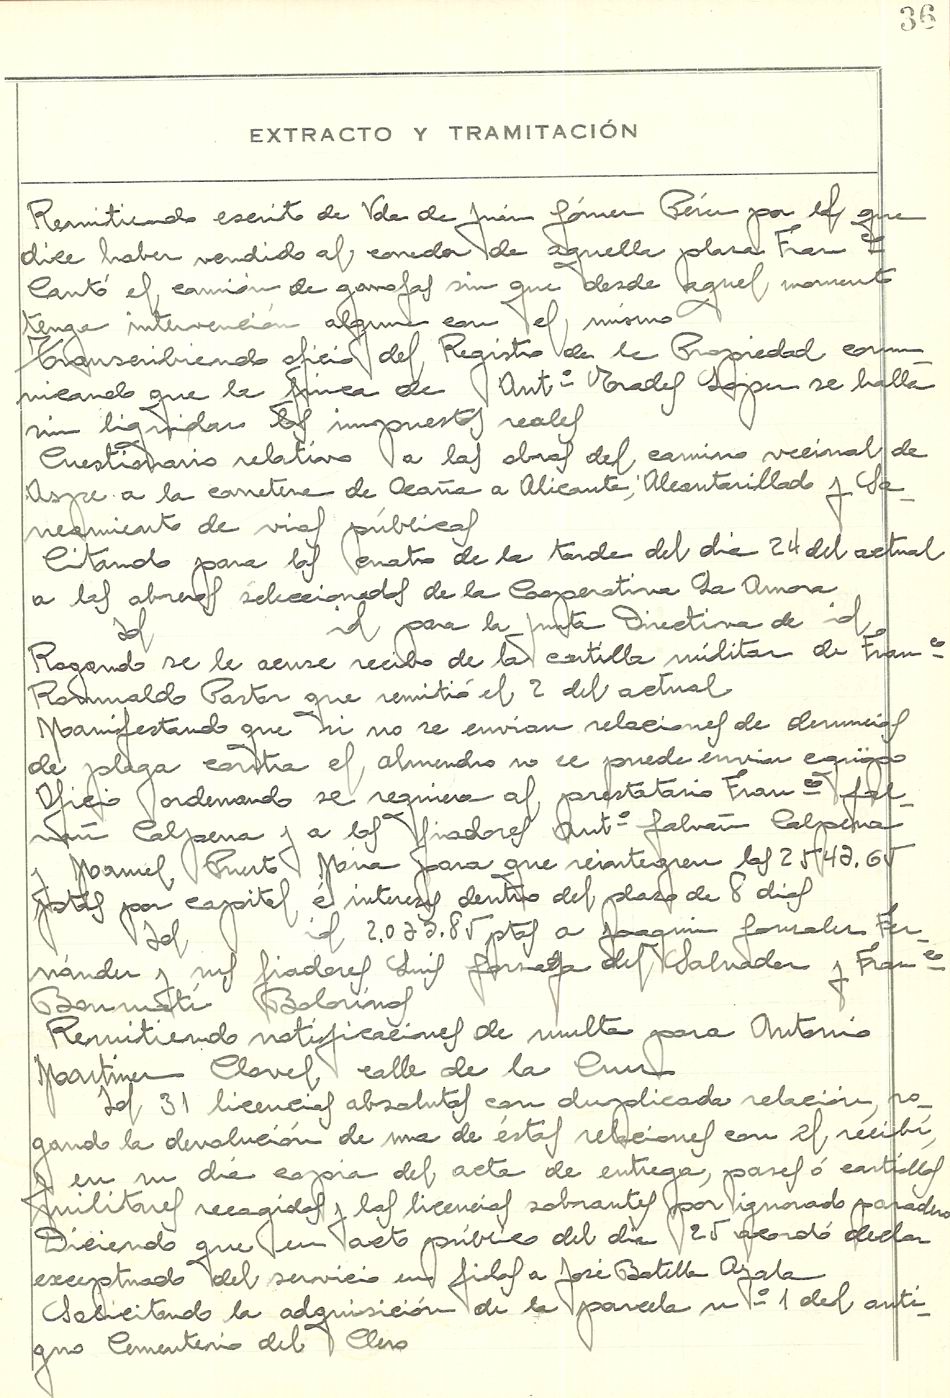 36
EXTRACTO Y TRAMITACIÓN
Remitiendo escrito de Vda de Juan Gómez Pérez por el que
dice haber vendido al corredor de aquella plaza Franco
Cantó el camión de garrofas sin que desde aquel momento
tenga intervención alguna con el mismo
Transcribiendo oficio del Registro de la Propiedad comu-
nicando que la finca de Anto Prades Lopez se halla
sin liquidar los impuestos reales
Cuestionario relativo a las obras del camino vecinal de
Aspe a la carretera de Ocaña a Alicante; Alcantarillado y Sa-
neamiento de vias públicas
Citando para las cuatro de la tarde del dia 24 del actual
a las obreras seleccionadas de la Cooperativa La Amora
Id id para la Junta Directiva de id
Rogando se le acuse recibo de la cartilla militar de Franco
Romualdo Pastor que remitió el 2 del actual
Manifestando que si no se envian relaciones de denuncias
de plaga contra el almendro no se puede enviar equipo
Oficio ordenando se requiera al prestatario Franco Gal-
vañ Calpena y a los fiadores Anto Galvañ Calpena
y Manuel Puerto Mira para que reintegren las
ptas por capital é intereses dentro del plazo de 8 dias
Id id ptas a Joaquin Gonzalez Fer-
nández y sus fiadores Luis del Salvador y Franco
Bonmatí
Remitiendo notificaciones de multa para Antonio
Martinez Clavel, calle de la Cruz
Id 31 licencias absolutas con duplicada relación, ro-
gando la devolución de una de éstas relaciones con el recibí,
y en su dia copia del acta de entrega, pases ó cartillas
militares recogidas y las licencias sobrantes por ignorado paradero
Diciendo que en acto público del dia 25 acordó declar
exceptuado del servicio en filas a José Botella Ayala
Solicitando la adquisición de la parcela no 1 del anti-
guo Cementerio del Clero